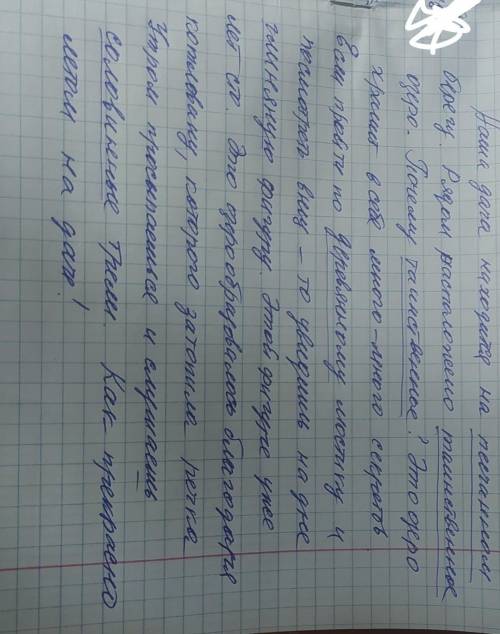 Наша дача находится на песчанном
брегу. Рядом расположено таинственное
озеро. Почему таинственное? Это озеро
хранит в себе много-много секретов
Если пройти по деревянному мостику и
посмотреть вниз - то увидишь на дне
глиняную фигуру. Этой фигуре уже
лет сто. Это озеро образовалось благодаря
котловану, которого затопила речка
Утром просыпаешься и слушаешь
соловьиные трели. Как прекрасно
летом на даче!